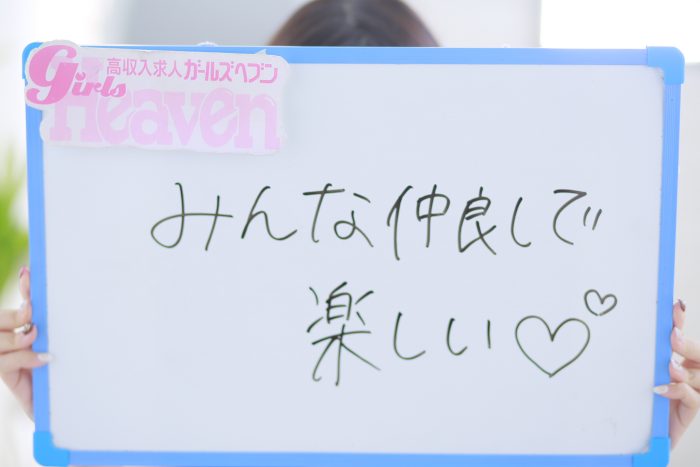 高収入求人ガールズヘブン
girls
Heaven
みんな仲良しで
楽しい♡♡